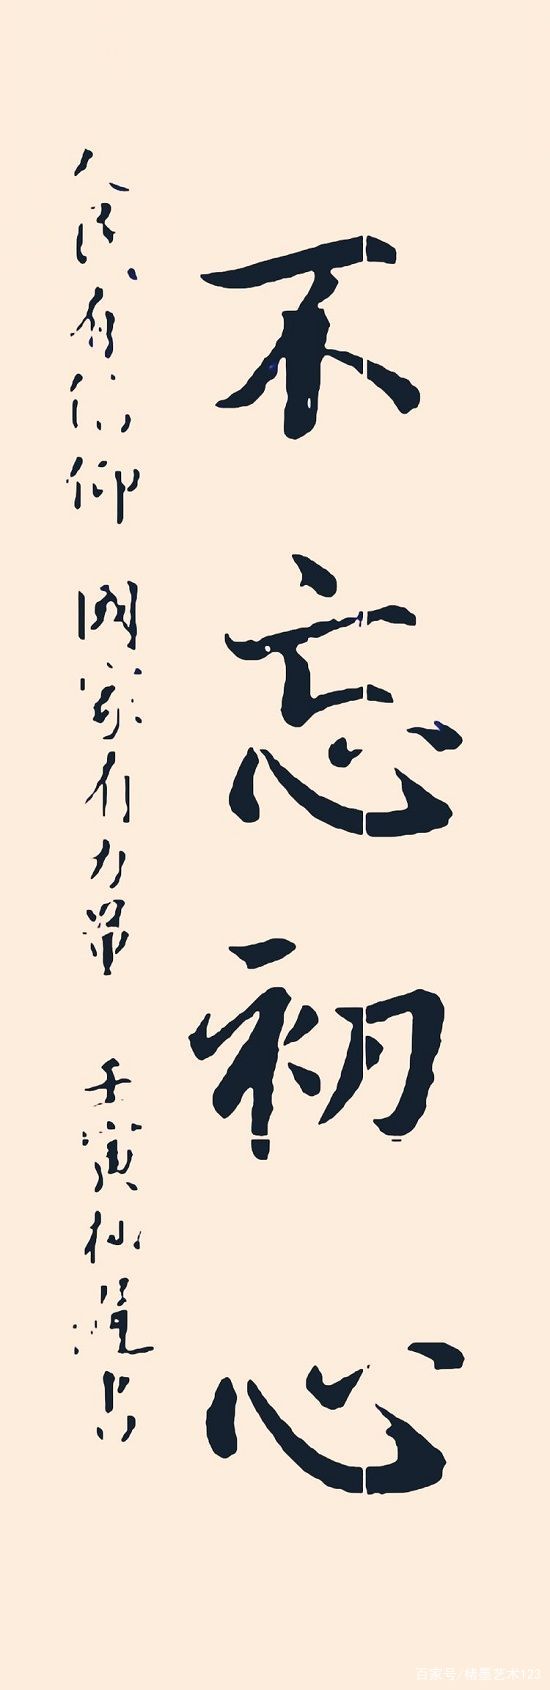 不忘初心
人民有信仰 国家有力量 壬寅 书
百家号/楮墨艺术123